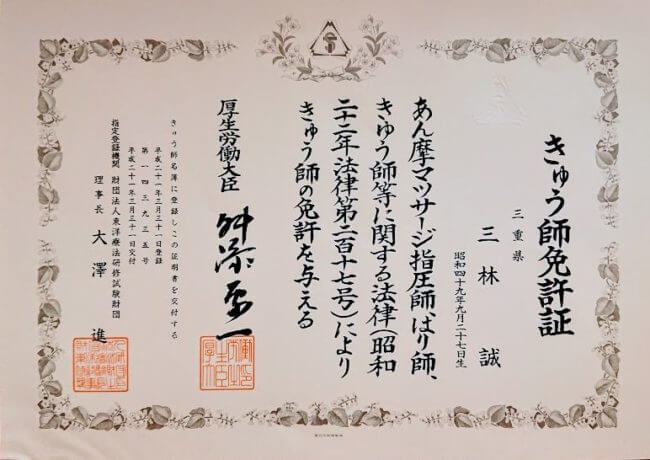 きゅう師免許証
三重県
三林 誠
昭和四十九年九月二十七日生
あん摩マツサージ指圧師、はり師、
きゅう師等に関する法律（昭和
二十二年法律第二百十七号）により
きゅう師の免許を与える
厚生労働大臣 舛添要一
きゅう師名簿に登録しこの証明書を交付する
平成二十一年三月三十一日登録
第一四三九三五号
平成二十一年三月三十一日交付
指定登録機関 財団法人東洋療法研修試験財団
理事長 大澤 進